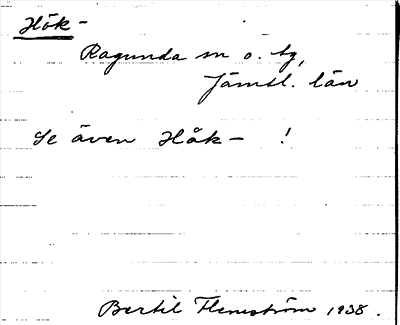 Hök-
Ragunda sn o. tg,
Jämtl. län
Se även Håk- !
Bertil Flemström 1938.